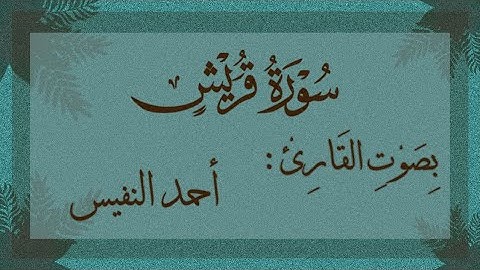 سُوْرَةُ قُرَيْشٍ
بِصَوْتِ القَارِئْ :
أحمد النفيس